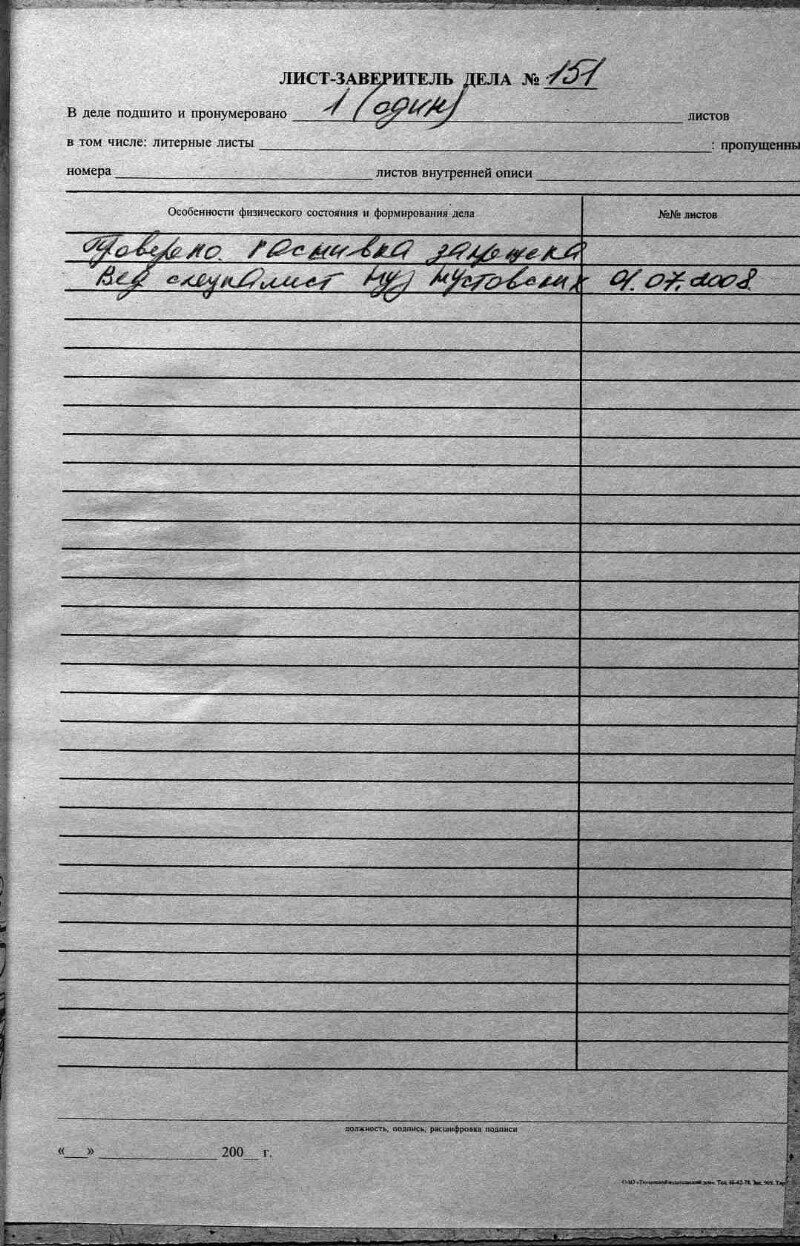 ЛИСТ-ЗАВЕРИТЕЛЬ ДЕЛА № 151
В деле подшито и пронумеровано 1 (один) листов
в том числе: литерные листы : пропущенны
номера листов внутренней описи
Особенности физического состояния и формирования дела №№ листов
Проверено. Расшивка запрещена
Вед специалист 01.07.2008.
должность, подпись, расшифровка подписи
«__» 200__ г.